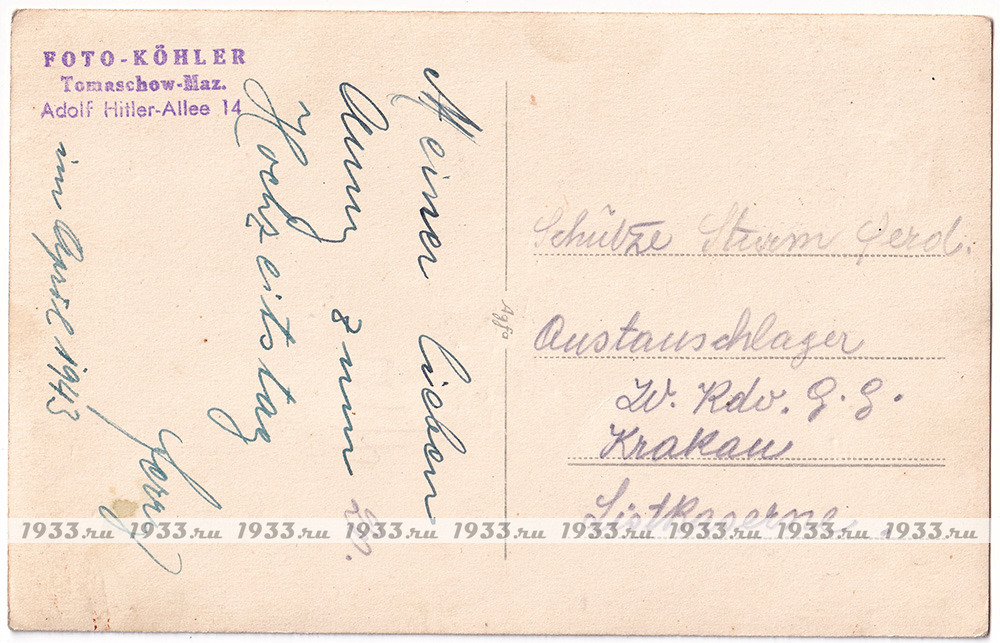 FOTO-KÖHLER
Tomaschow-Maz.
Adolf Hitler-Allee 14
Meiner lieben
Anny zum
Hochzeitstag
Ferry
im April 1943
Agfa
Schütze Sturm Ferd.
Austauschlager
W. Kdo. G. G.
Krakau
Listkaserne
1933.ru 1933.ru 1933.ru 1933.ru 1933.ru 1933.ru 1933.ru 1933.ru 1933.ru